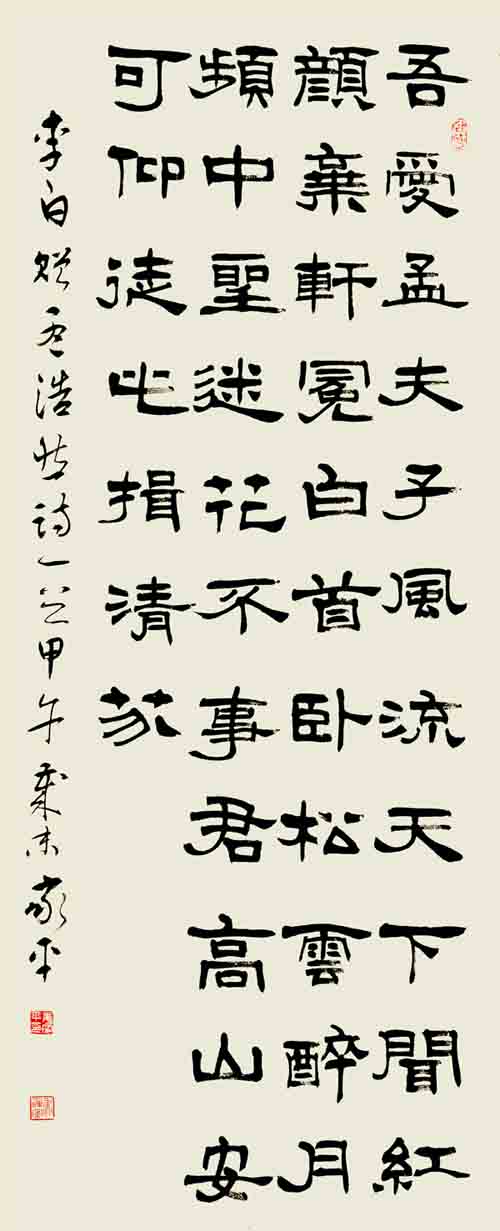 吾愛孟夫子風流天下聞紅
顔棄軒冕白首卧松雲醉月
頻中聖迷花不事君高山安
可仰徒此揖清芬
李白贈孟浩然詩一首甲午歲末家平